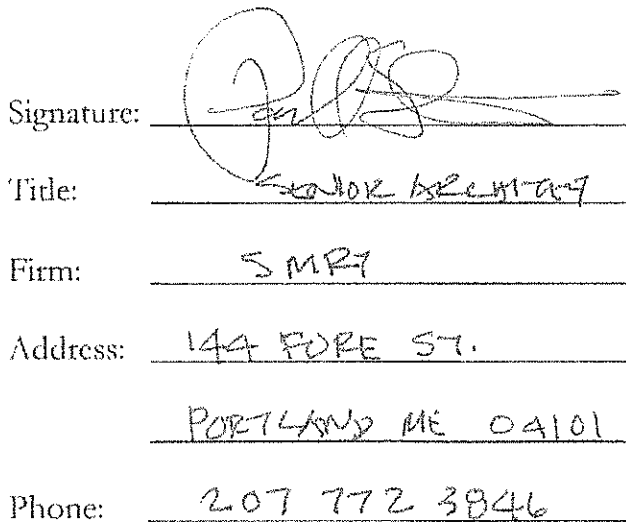 Signature:
Title: SENIOR ARCHITECT
Firm: SMRT
Address: 144 FORE ST.
PORTLAND ME 04101
Phone: 207 772 3846